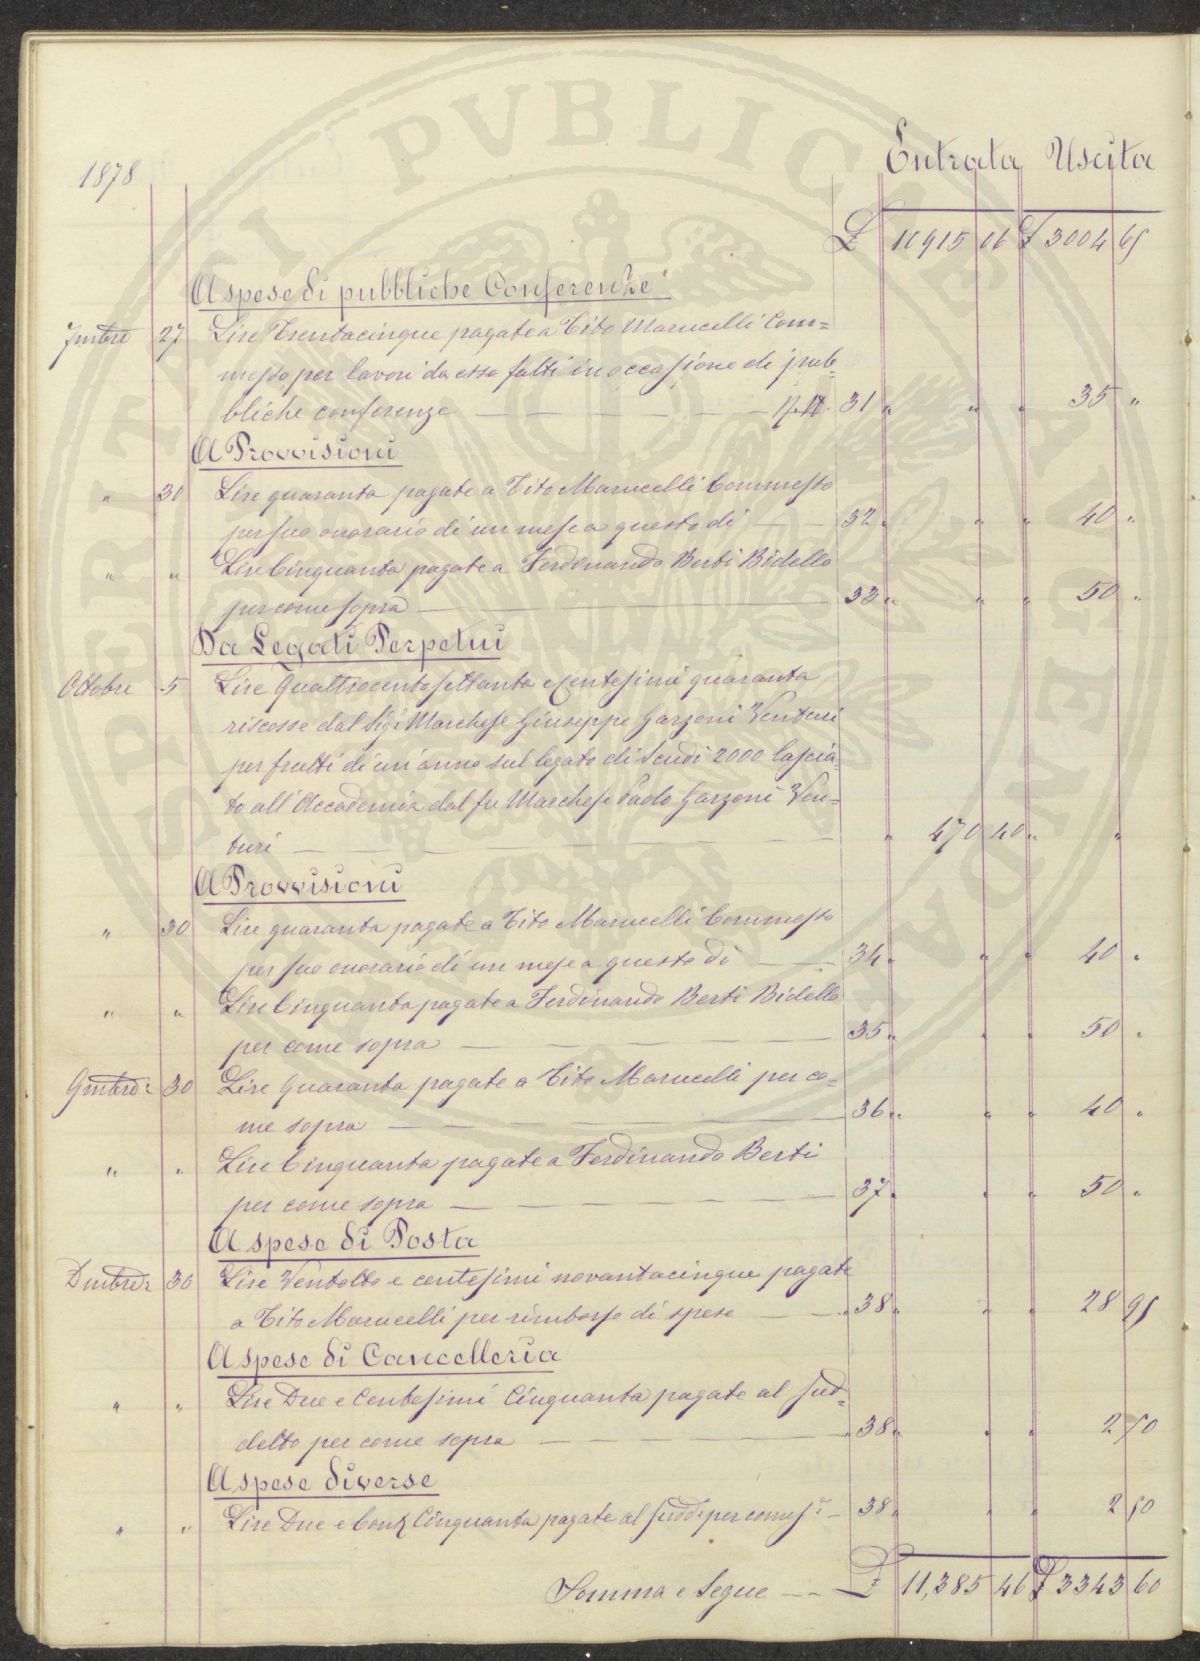 PROSPERITATI PUBLICAE AUGENDAE
1878
Entrata Uscita
£ 10915 06 £ 3004 65
A spese di pubbliche Conferenze
7mbre 27 Lire Trentacinque pagate a Tito Marucelli Com=
messo per lavori da esso fatti in occasione di pub-
bliche conferenze — 31 " " " 35 "
A Provvisioni
" 30 Lire quaranta pagate a Tito Marucelli Commesso
per suo onorario di un mese a questo dì — 32 " " " 40 "
" " Lire Cinquanta pagate a Ferdinando Berti Bidello
per come sopra — 33 " " " 50 "
Da Legati Perpetui
Ottobre 5 Lire Quattrocentosettanta e Centesimi quaranta
riscosse dal Sig. Marchese Giuseppe Garzoni Venturi
per frutti di un anno sul legato di Scudi 2000 lascia-
to all'Accademia dal fu Marchese Paolo Garzoni Ven-
turi — " 470 40 " "
A Provvisioni
" 30 Lire quaranta pagate a Tito Marucelli Commesso
per suo onorario di un mese a questo dì — 34 " " " 40 "
" " Lire Cinquanta pagate a Ferdinando Berti Bidello
per come sopra — 35 " " " 50 "
9mbre 30 Lire Quaranta pagate a Tito Marucelli per co-
me sopra — 36 " " " 40 "
" " Lire Cinquanta pagate a Ferdinando Berti
per come sopra — 37 " " " 50 "
A spese di Posta
Dmbre 30 Lire Ventotto e centesimi novantacinque pagate
a Tito Marucelli per rimborso di spese — " 38 " " " 28 95
A spese di Cancelleria
" " Lire Due e Centesimi Cinquanta pagate al sud-
detto per come sopra — " 38 " " " 2 50
A spese diverse
" " Lire Due e Cent. Cinquanta pagate al sudd. per come s. — 38 " " " 2 50
Somma e Segue — £ 11,385 46 £ 3343 60